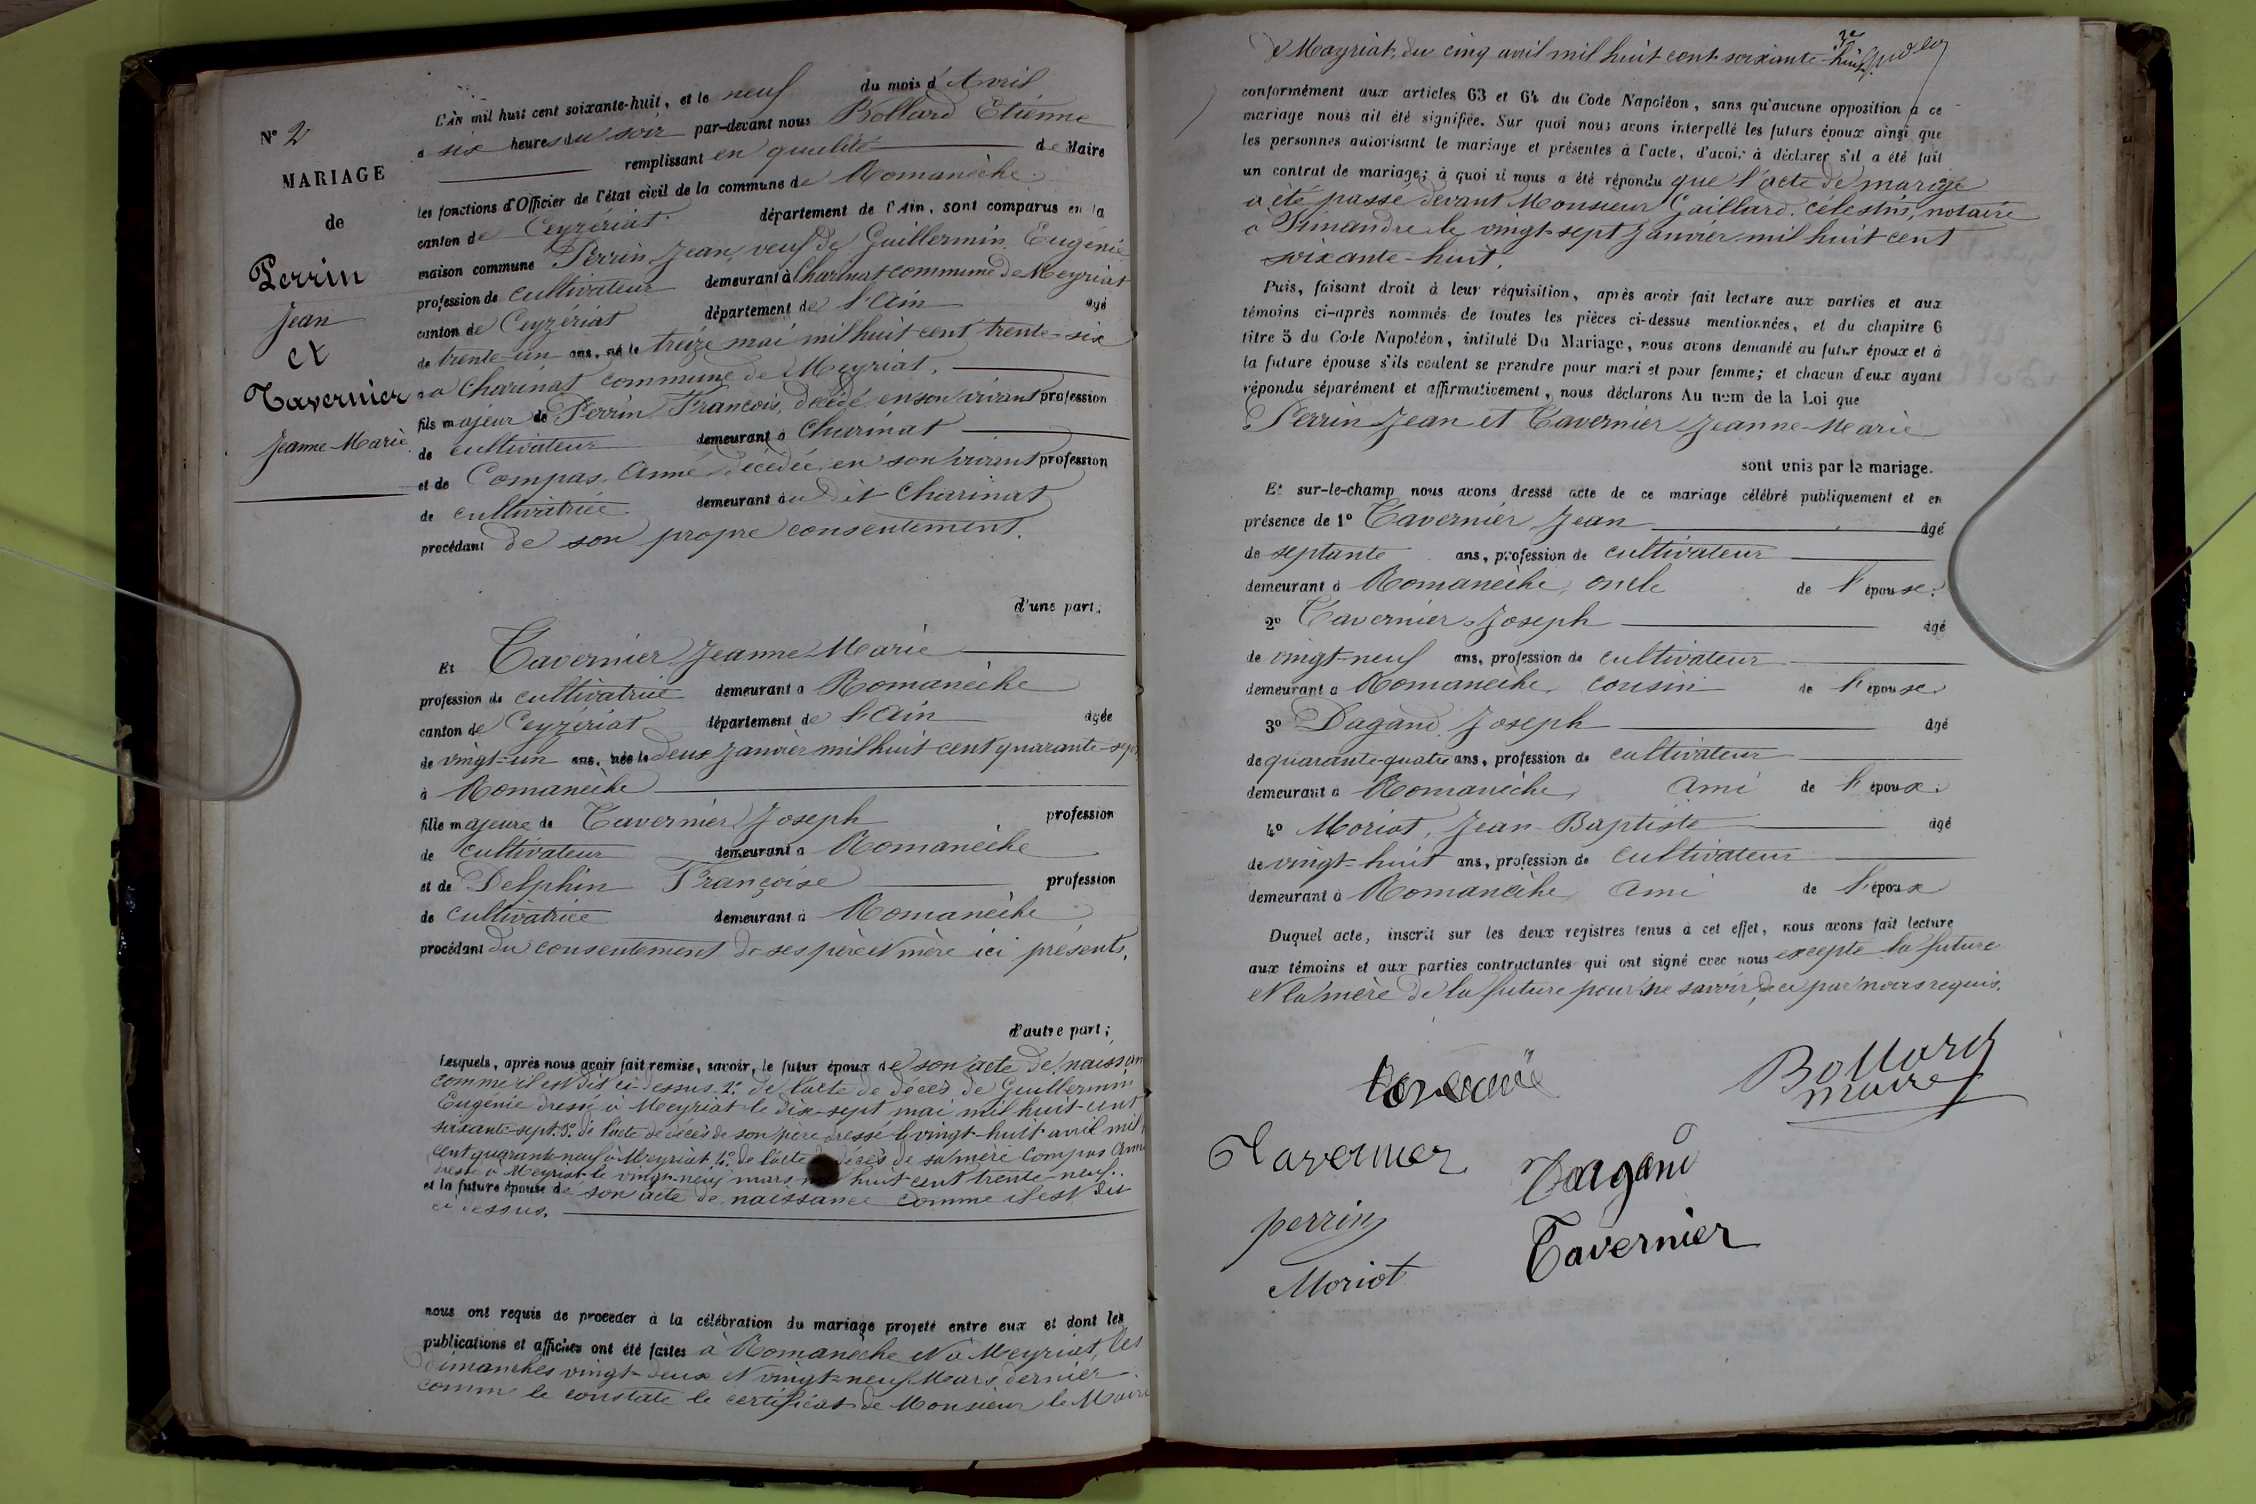 N° 2
MARIAGE
de
Perrin
Jean
et
Tavernier
Jeanne-Marie
L'An mil huit cent soixante-huit, et le neuf du mois d'Avril
à six heures du soir par-devant nous Bollard Etienne
remplissant en qualité de Maire
les fonctions d'Officier de l'état civil de la commune de Romanèche
canton de Ceyzériat département de l'Ain, sont comparus en la
maison commune Perrin Jean, veuf de Guillermin Eugénie
profession de cultivateur demeurant à Charinat commune de Meyriat
canton de Ceyzériat département de l'Ain âgé
de trente-un ans, né le treize mai mil huit cent trente-six
à Charinat commune de Meyriat.
fils majeur de Perrin François, décédé, en son vivant profession
de cultivateur demeurant à Charinat
et de Compas, Anne décédée, en son vivant profession
de cultivatrice demeurant au dit Charinat
procédant de son propre consentement.
d'une part;
Et Tavernier Jeanne-Marie
profession de cultivatrice demeurant à Romanèche
canton de Ceyzériat département de l'Ain âgée
de vingt-un ans, née le deux janvier mil huit cent quarante-sept
à Romanèche
fille majeure de Tavernier Joseph profession
de cultivateur demeurant à Romanèche
et de Delphin Françoise profession
de cultivatrice demeurant à Romanèche
procédant du consentement de ses père et mère ici présents.
d'autre part;
Lesquels, après nous avoir fait remise, savoir, le futur époux de son acte de naissan
comme il est dit ci-dessus. 2° de l'acte de décès de Guillermin
Eugénie dressé à Meyriat le dix-sept mai mil huit cent
soixante-sept. 3° de l'acte de décès de son père dressé le vingt-huit avril mil
cent quarante neuf à Meyriat. 4° de l'acte décès de sa mère Compas Anne
dressé à Meyriat le vingt-neuf mars huit cent trente-neuf.
et la future épouse de son acte de naissance comme il est dit
ci-dessus.
nous ont requis de procéder à la célébration du mariage projeté entre eux et dont les
publications et affiches ont été faites à Romanèche et à Meyriat, les
dimanches vingt-deux et vingt-neuf Mars dernier
comme le constate le certificat de Monsieur le Maire
de Meyriat, du cinq avril mil huit cent soixante-huit
conformément aux articles 63 et 64 du Code Napoléon, sans qu'aucune opposition à ce
mariage nous ait été signifiée. Sur quoi nous avons interpellé les futurs époux ainsi que
les personnes autorisant le mariage et présentes à l'acte, d'avoir à déclarer s'il a été fait
un contrat de mariage; à quoi il nous a été répondu que l'acte de mariage
a été passé devant Monsieur Gaillard. Célestin, notaire
à Simandre le vingt-sept janvier mil huit cent
soixante-huit.
Puis, faisant droit à leur réquisition, après avoir fait lecture aux parties et aux
témoins ci-après nommés de toutes les pièces ci-dessus mentionnées, et du chapitre 6
titre 5 du Code Napoléon, intitulé Du Mariage, nous avons demandé au futur époux et à
la future épouse s'ils veulent se prendre pour mari et pour femme; et chacun d'eux ayant
répondu séparément et affirmativement, nous déclarons Au nom de la Loi que
Perrin Jean et Tavernier Jeanne-Marie
sont unis par le mariage.
Et sur-le-champ nous avons dressé acte de ce mariage célébré publiquement et en
présence de 1° Tavernier Jean âgé
de septante ans, profession de cultivateur
demeurant à Romanèche, oncle de l'épouse.
2° Tavernier Joseph âgé
de vingt-neuf ans, profession de cultivateur
demeurant à Romanèche, cousin de l'épouse.
3° Dagand Joseph âgé
de quarante-quatre ans, profession de cultivateur
demeurant à Romanèche, ami de l'époux.
4° Moriot, Jean-Baptiste âgé
de vingt-huit ans, profession de cultivateur
demeurant à Romanèche Ami de l'époux
Duquel acte, inscrit sur les deux registres tenus à cet effet, nous avons fait lecture
aux témoins et aux parties contractantes qui ont signé avec nous excepté la future
et la mère de la future pour ne savoir, de ce par nous requis.
Bollard
maire
Tavernier
Dagand
perrin
Tavernier
Moriot